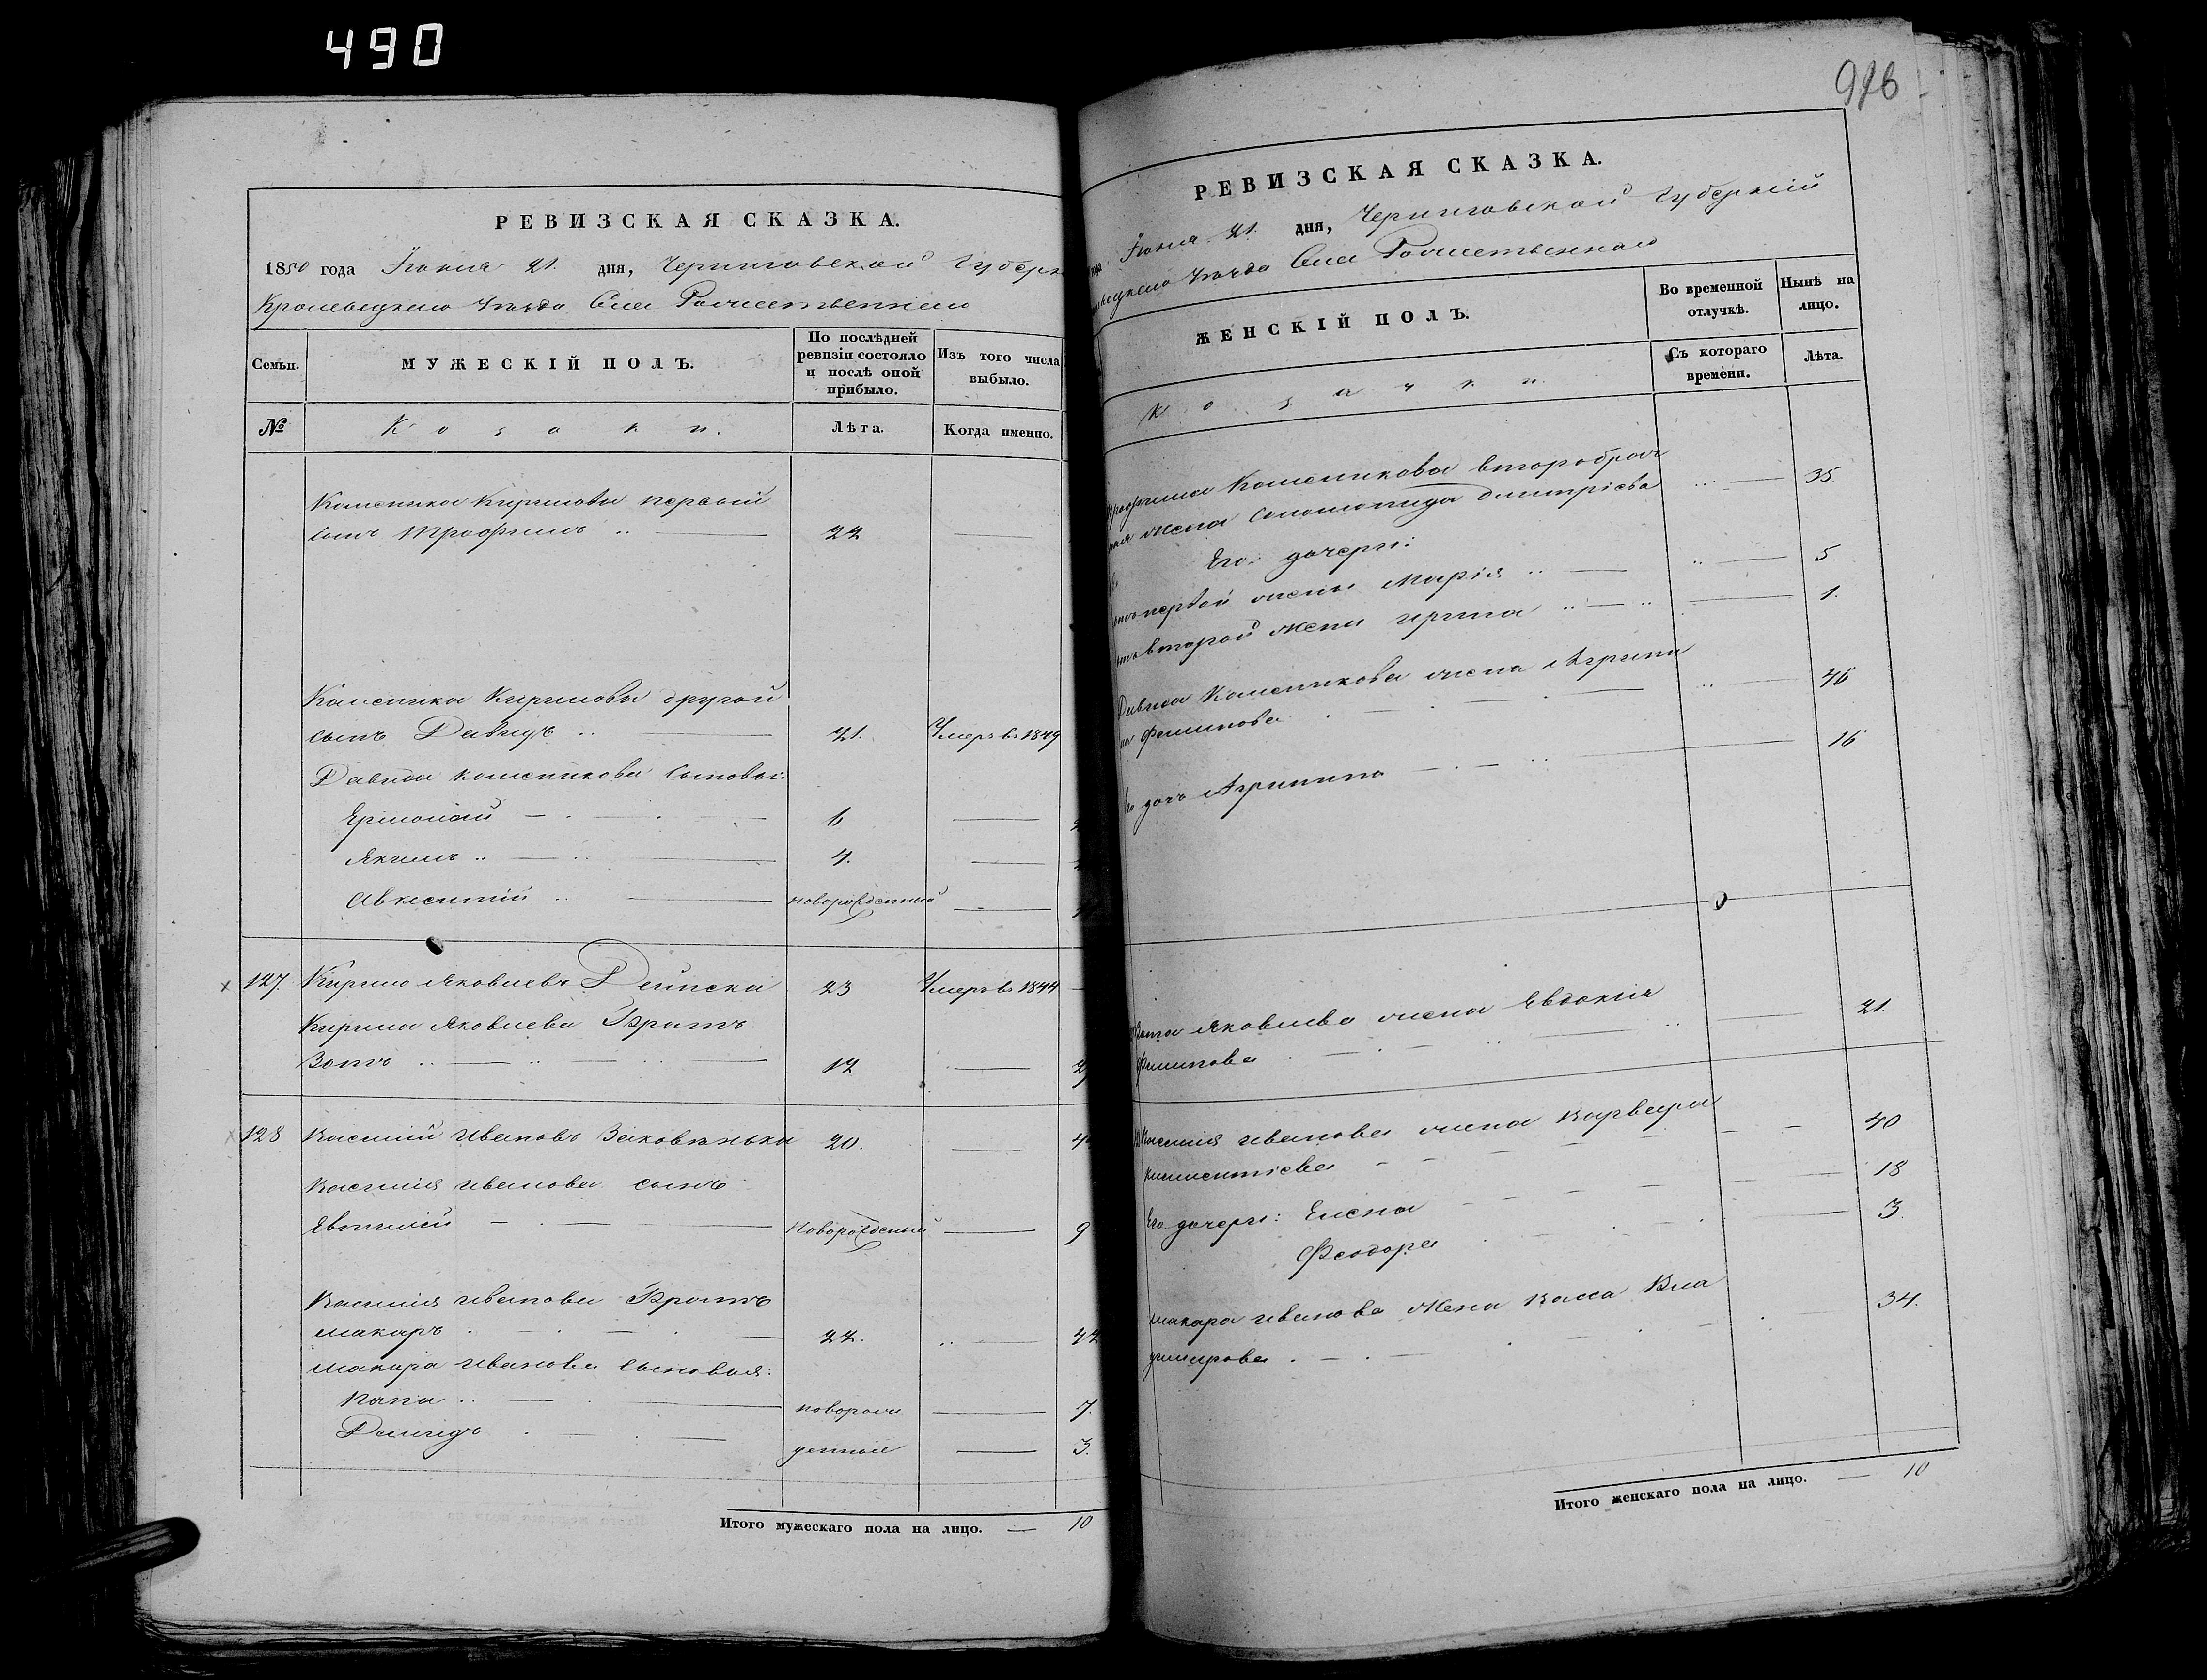 490
РЕВИЗСКАЯ СКАЗКА.
1850 года Іюня 21. дня, Черниговской Губерн
Кролевецкаго Уѣзда Села Рожественскаго
Семьи.
МУЖЕСКІЙ ПОЛЪ.
По послѣдней ревизіи состояло и послѣ оной прибыло.
Изъ того числа выбыло.
№
Козаки.
Лѣта.
Когда именно.
Каленика Кирилова первый
сынъ Трофимъ 22
Каленика Кирилова другой
сынъ Давидъ 21. Умеръ въ 1849
Давида Каленикова сыновья:
Ермолай 6
Якимъ 4.
Авксентий новорожденный
127. Кирило Яковлевъ 23 Умеръ въ 1844
Кирила Яковлева Братъ
Зотъ 12
128 Василий Ивановъ 20.
Василия Иванова сынъ
Евтихий Новорожденный 9
Василия Иванова Братъ
Макаръ 22. 42
Макара Иванова сыновья:
новорож 7.
Демидъ денные 3.
Итого мужескаго пола на лицо. — 10
РЕВИЗСКАЯ СКАЗКА.
Іюня 21. дня, Черниговской Губерніи
Уѣзда Села Рожественнаго
ЖЕНСКІЙ ПОЛЪ.
Во временной отлучкѣ.
Нынѣ на лицо.
Козачки.
Съ котораго времени.
Лѣта.
Трофима Каленикова второбрач
ная жена Соломонида Дмитріева 35.
Его дочери:
отъ первой жены Марія 5.
отъ второй жены Ирина 1.
Давида Каленикова жена Агрипи
на Филипова 46
Его дочь Агрипина 16
Зота Яковлева жена Евдокия
Филипова 21.
Василия Иванова жена Варвара
Климентіева 40
Его дочери: Елена 18
Феодора 3.
Макара Иванова жена Васса Вла
димирова 34.
Итого женскаго пола на лицо. — 10